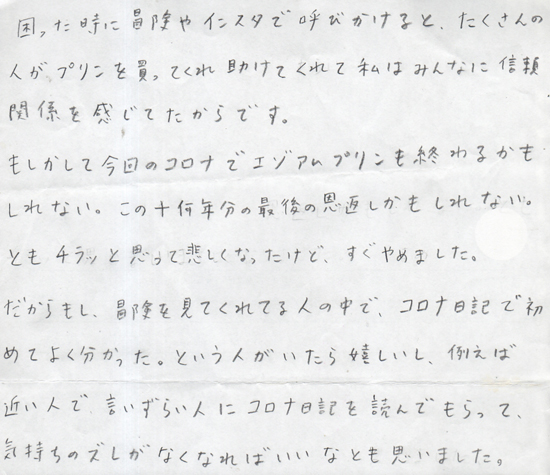 困った時に冒険やインスタで呼びかけると、たくさんの
人がプリンを買ってくれ助けてくれて私はみんなに信頼
関係を感じてたからです。
もしかして今回のコロナでエゾアムプリンも終わるかも
しれない。この十何年分の最後の恩返しかもしれない。
ともチラッと思って悲しくなったけど、すぐやめました。
だからもし、冒険を見てくれてる人の中で、コロナ日記で初
めてよく分かった。という人がいたら嬉しいし、例えば
近い人で言いずらい人にコロナ日記を読んでもらって、
気持ちのズレがなくなればいいなとも思いました。